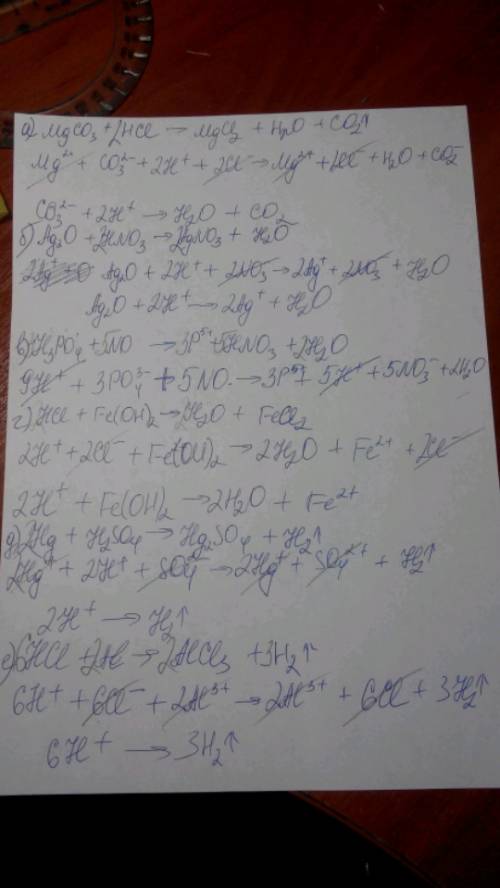 а) MgCO₃ + 2HCl → MgCl₂ + H₂O + CO₂↑
Mg²⁺ + CO₃²⁻ + 2H⁺ + 2Cl⁻ → Mg²⁺ + 2Cl⁻ + H₂O + CO₂
CO₃²⁻ + 2H⁺ → H₂O + CO₂
б) Ag₂O + 2HNO₃ → 2AgNO₃ + H₂O
Ag₂O + 2H⁺ + 2NO₃⁻ → 2Ag⁺ + 2NO₃⁻ + H₂O
Ag₂O + 2H⁺ → 2Ag⁺ + H₂O
в) H₃PO₄ + 5NO → 3P⁵⁺ + 5HNO₃ + 2H₂O
9H⁺ + 3PO₄³⁻ + 5NO → 3P⁵⁺ + 5H⁺ + 5NO₃⁻ + 2H₂O
г) HCl + Fe(OH)₂ → 2H₂O + FeCl₂
2H⁺ + 2Cl⁻ + Fe(OH)₂ → 2H₂O + Fe²⁺ + 2Cl⁻
2H⁺ + Fe(OH)₂ → 2H₂O + Fe²⁺
д) 2Hg + H₂SO₄ → Hg₂SO₄ + H₂↑
2Hg⁺ + 2H⁺ + SO₄ → 2Hg⁺ + SO₄ + H₂↑
2H⁺ → H₂↑
е) 6HCl + 2Al → 2AlCl₃ + 3H₂↑
6H⁺ + 6Cl⁻ + 2Al³⁺ → 2Al³⁺ + 6Cl + 3H₂↑
6H⁺ → 3H₂↑